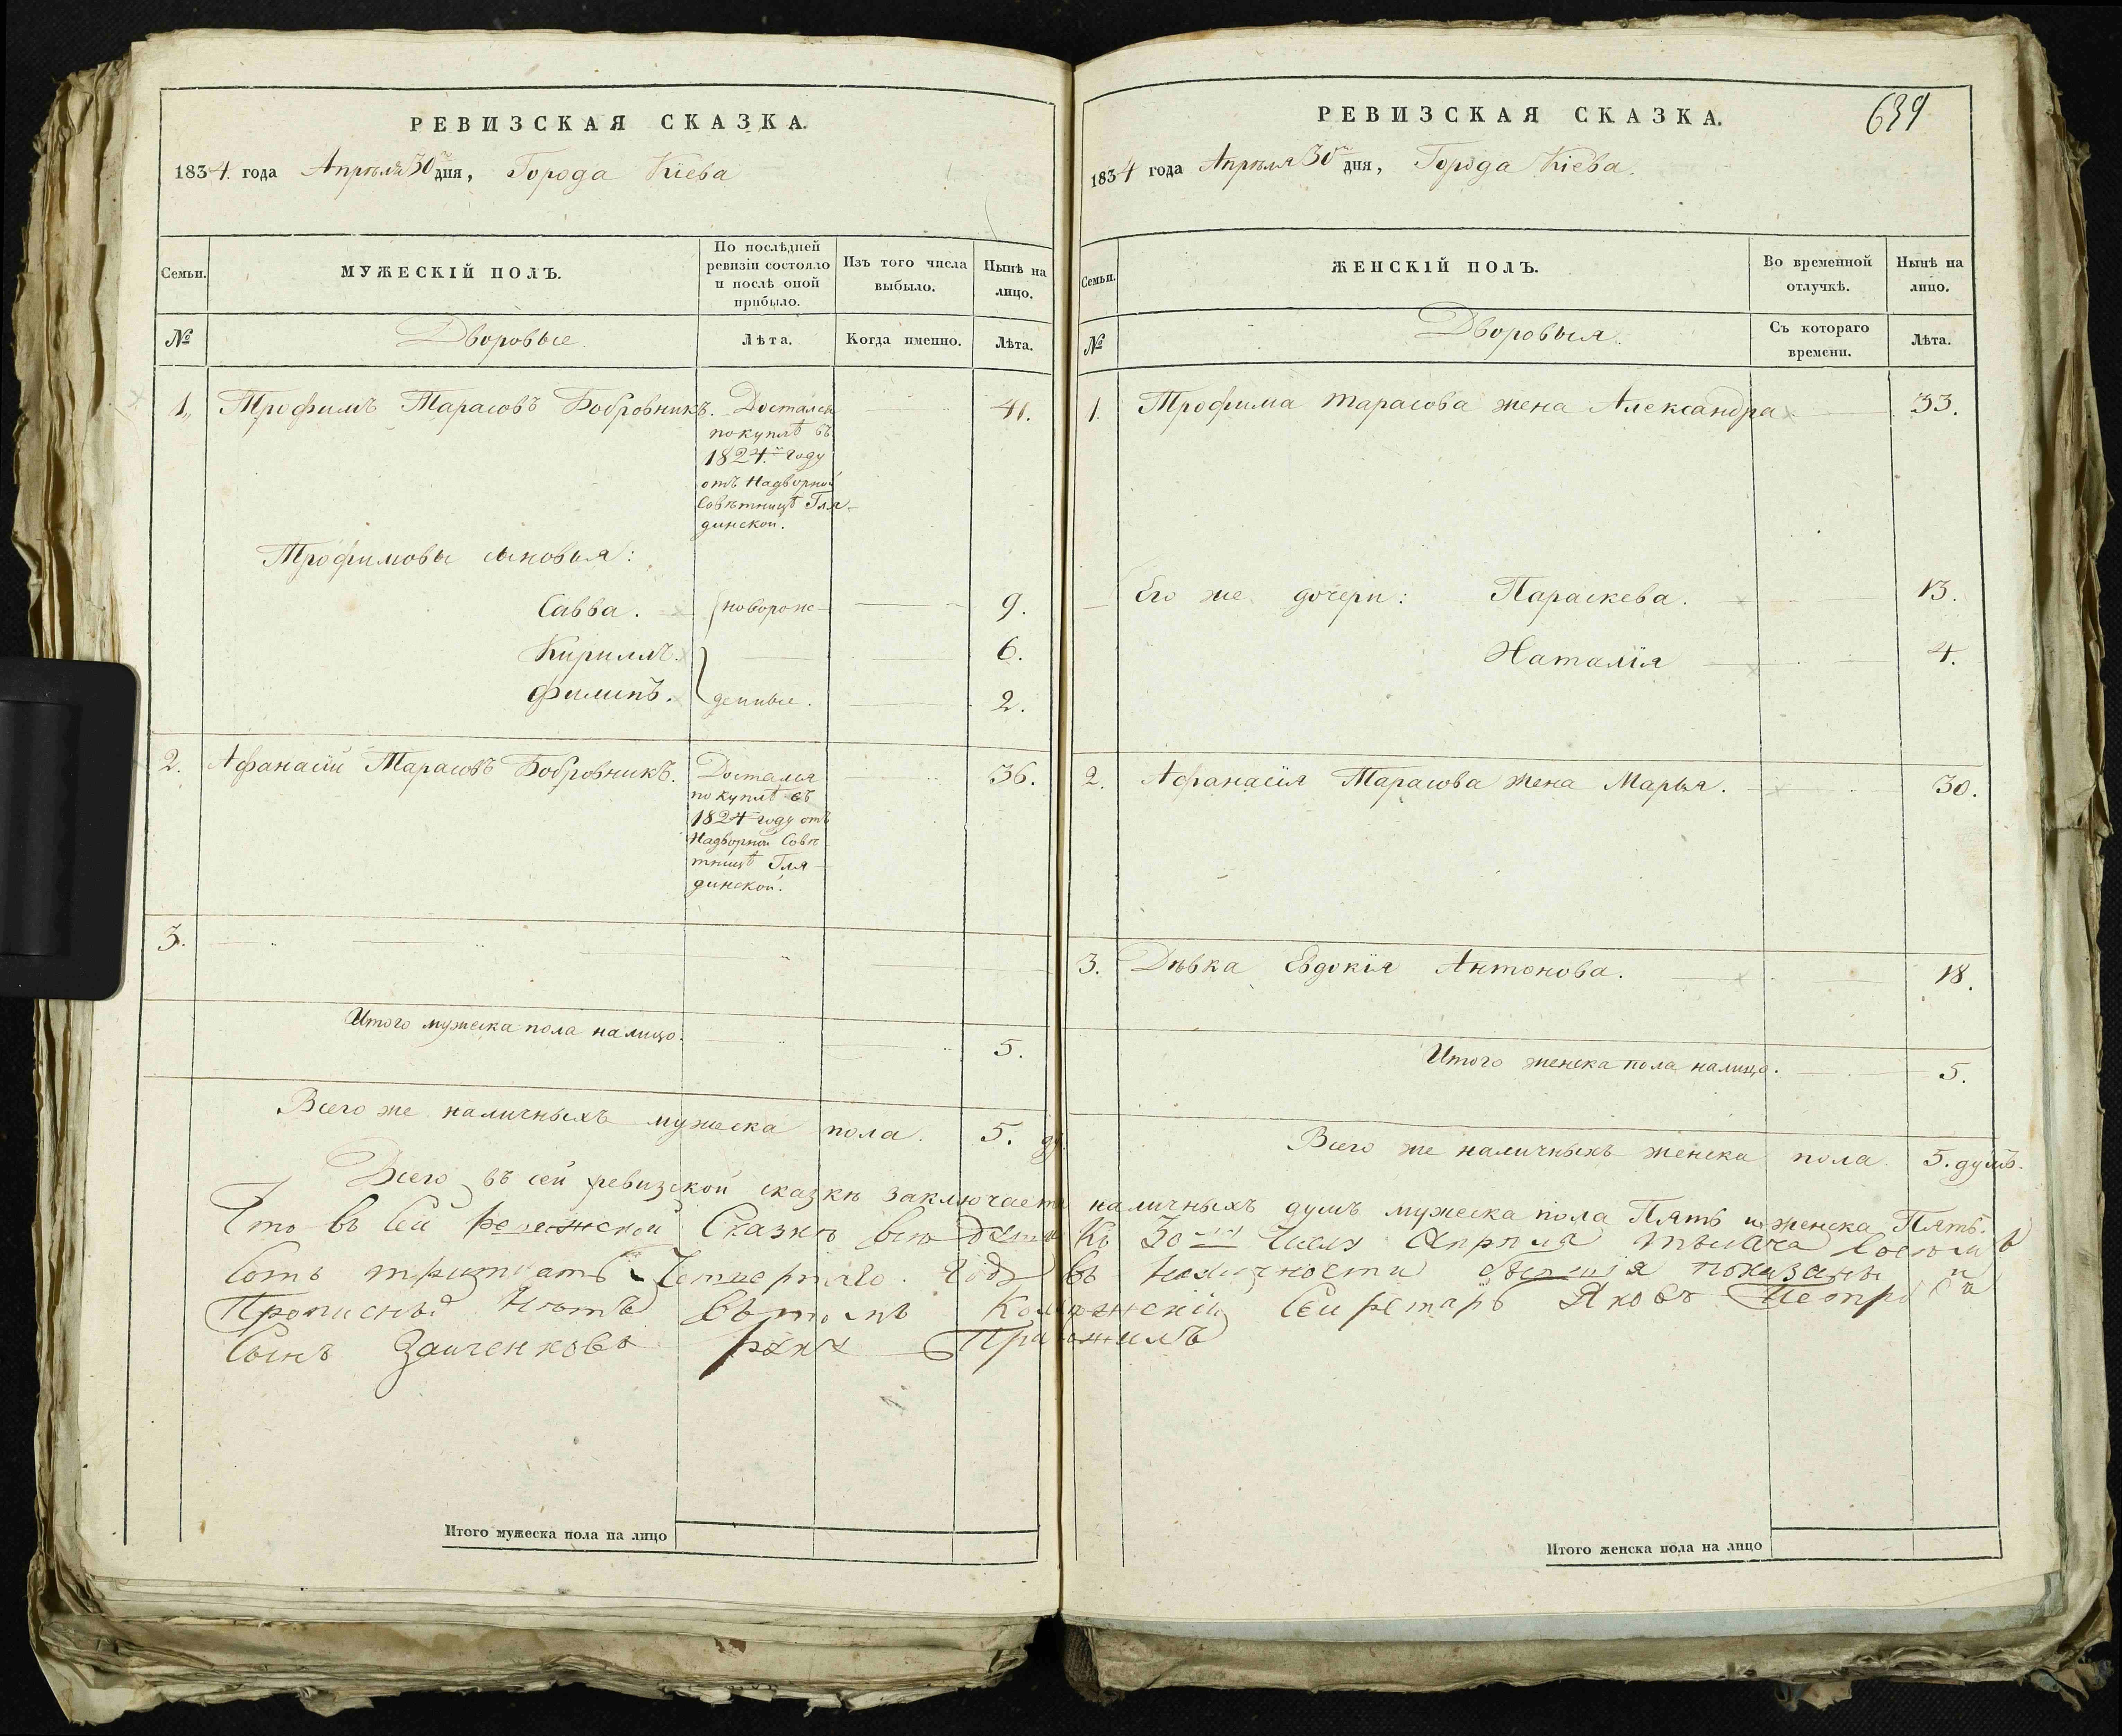 РЕВИЗСКАЯ СКАЗКА.
1834 года Апрѣля 30 дня, Города Кіева
Семьи. МУЖЕСКІЙ ПОЛЪ. По послѣдней ревизіи состояло и послѣ оной прибыло. Изъ того числа выбыло. Нынѣ на лицо.
№ Дворовые. Лѣта. Когда именно. Лѣта.
1. Трофимъ Тарасовъ Бобровникъ. Достался 41.
покупкѣ въ
1824 году
отъ Надворной
Совѣтницѣ Гля-
динской.
Трофимовы сыновья:
Савва. новорож- 9.
Кириллъ. 6.
Филипъ. денные. 2.
2. Афанасій Тарасовъ Бобровникъ. Достался 36.
покупкѣ въ
1824 году отъ
Надворной Совѣ
тницѣ Гля-
динской.
3.
Итого мужеска пола на лицо. 5.
Всего же наличныхъ мужеска пола. 5. ду.
РЕВИЗСКАЯ СКАЗКА. 639
1834 года Апрѣля 30 дня, Города Кіева.
Семьи. ЖЕНСКІЙ ПОЛЪ. Во временной отлучкѣ. Нынѣ на лицо.
№ Дворовыя. Съ котораго времени. Лѣта.
1. Трофима Тарасова жена Александра 33.
Его же дочери: Параскева. 13.
Наталія 4.
2. Афанасія Тарасова жена Марья. 30.
3. Дѣвка Евдокія Антонова. 18.
Итого женска пола налицо. 5.
Всего же наличныхъ женска пола. 5. душъ.
Всего въ сей ревизской сказкѣ заключается наличныхъ душъ мужеска пола Пять и женска Пять.
Что въ сей Сказкѣ все Къ 30 числу Апреля месяца восемь
сотъ тритцать Четвертаго году въ наличности показаны и
Прописныхъ Нетъ въ томъ Колежскій Секретарь Яковъ Петровъ
Сынъ Заиченковъ руку Приложилъ
Итого мужеска пола на лицо
Итого женска пола на лицо